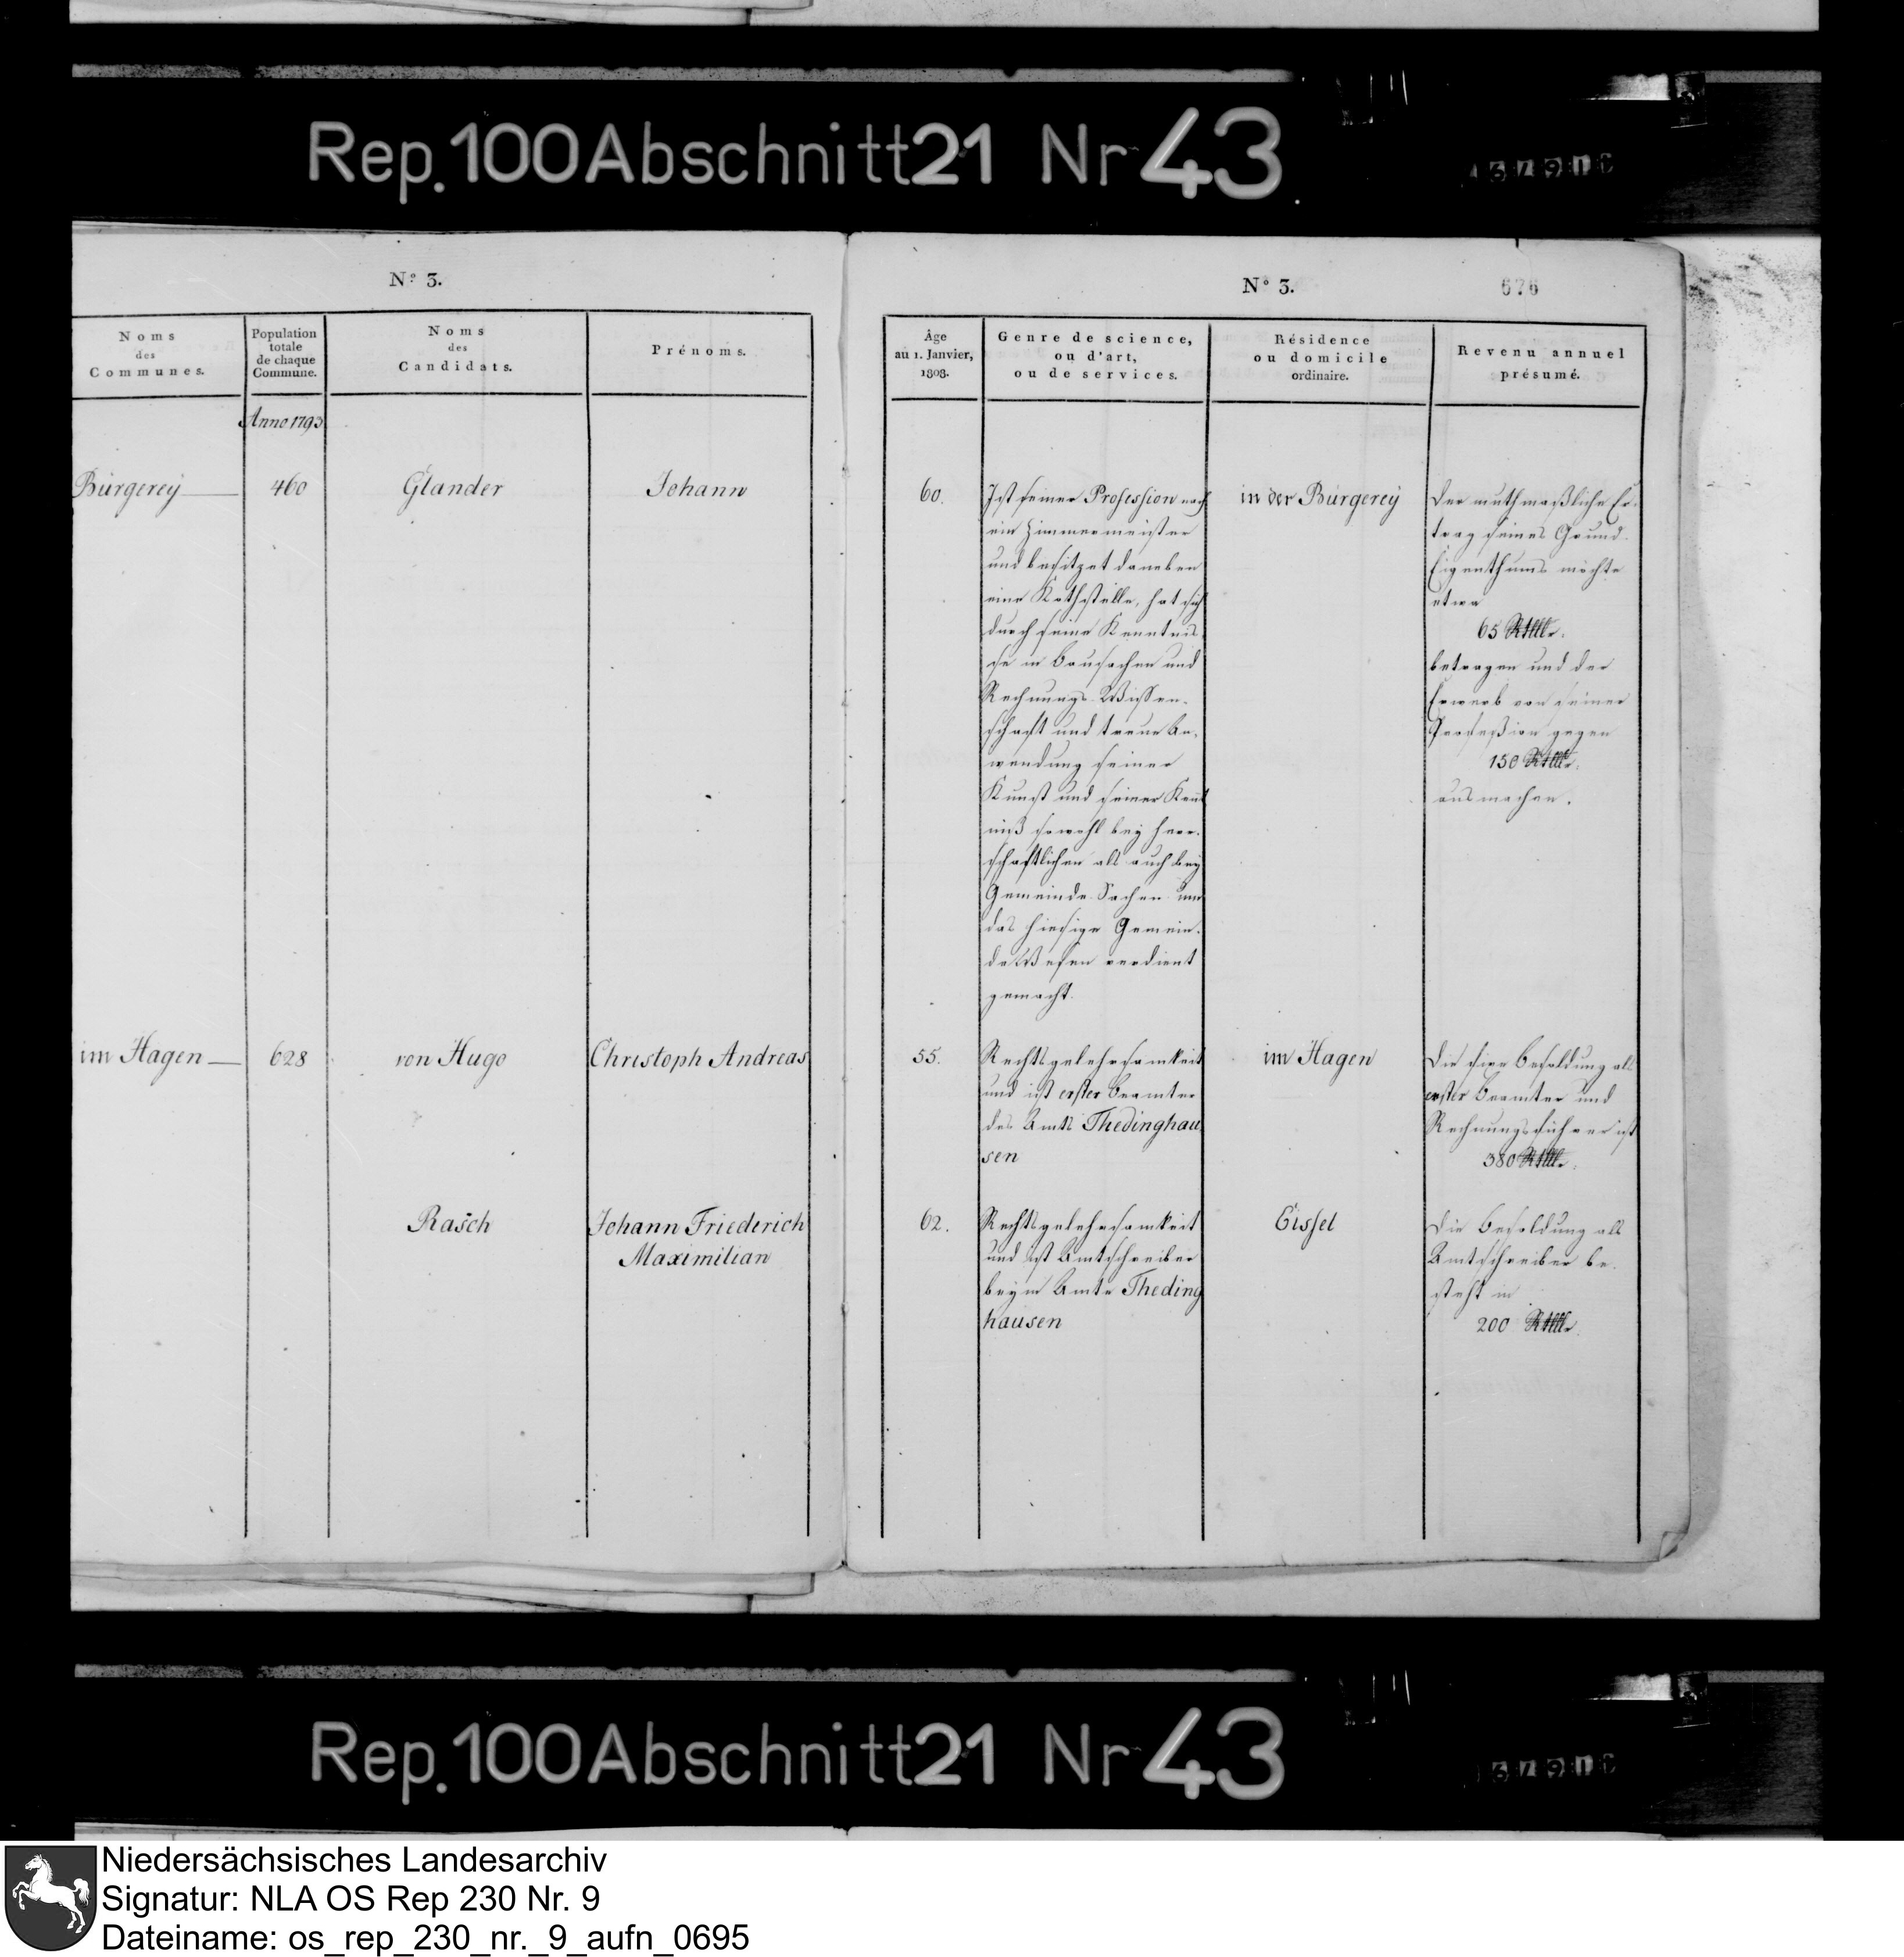 Rep. 100 Abschnitt 21 Nr 43
N.° 3.
Noms
des
Communes.
Population
totale
de chaque
Commune.
Noms
des
Candidats.
Prénoms.
Anno 1793
Bürgerey
460
Glander
Johann
im Hagen
628
von Hugo
Christoph Andreas
Rasch
Johann Friederich
Maximilian
N° 3.
676
Âge
au 1. Janvier,
1808.
Genre de science,
ou d'art,
ou de services.
Résidence
ou domicile
ordinaire.
Revenu annuel
présumé.
60.
Ist seiner Profession nach
ein Zimmermeister
und besitzet daneben
eine Kothstelle, hat sich
durch seine Kenntnis
se in Bausachen und
Rechnungs-Wissen-
schaft und treue An-
wendung seiner
Kunst und seiner Kent
niß sowohl bey herr-
schaftlichen als auch bey
Gemeinde-Sachen um
das hiesige Gemein-
de Wesen verdient
gemacht.
in der Bürgerey
Der muthmaßliche Er-
trag seines Grund-
Eigenthums möchte
etwa
65 Rthlr.
betragen und der
Erwerb von seiner
Profeßion gegen
150 Rthlr.
ausmachen.
55.
Rechtsgelehrsamkeit
und ist erster Beamter
des Amts Thedinghau
sen
im Hagen
Die fixe Besoldung als
erster Beamter und
Rechnungsführer ist
380 Rthlr.
62.
Rechtsgelehrsamkeit
und ist Amtschreiber
beym Amte Theding
hausen
Eissel
Die Besoldung als
Amtschreiber be-
steht in
200 Rthlr.
Rep. 100 Abschnitt 21 Nr 43
Niedersächsisches Landesarchiv
Signatur: NLA OS Rep 230 Nr. 9
Dateiname: os_rep_230_nr._9_aufn_0695